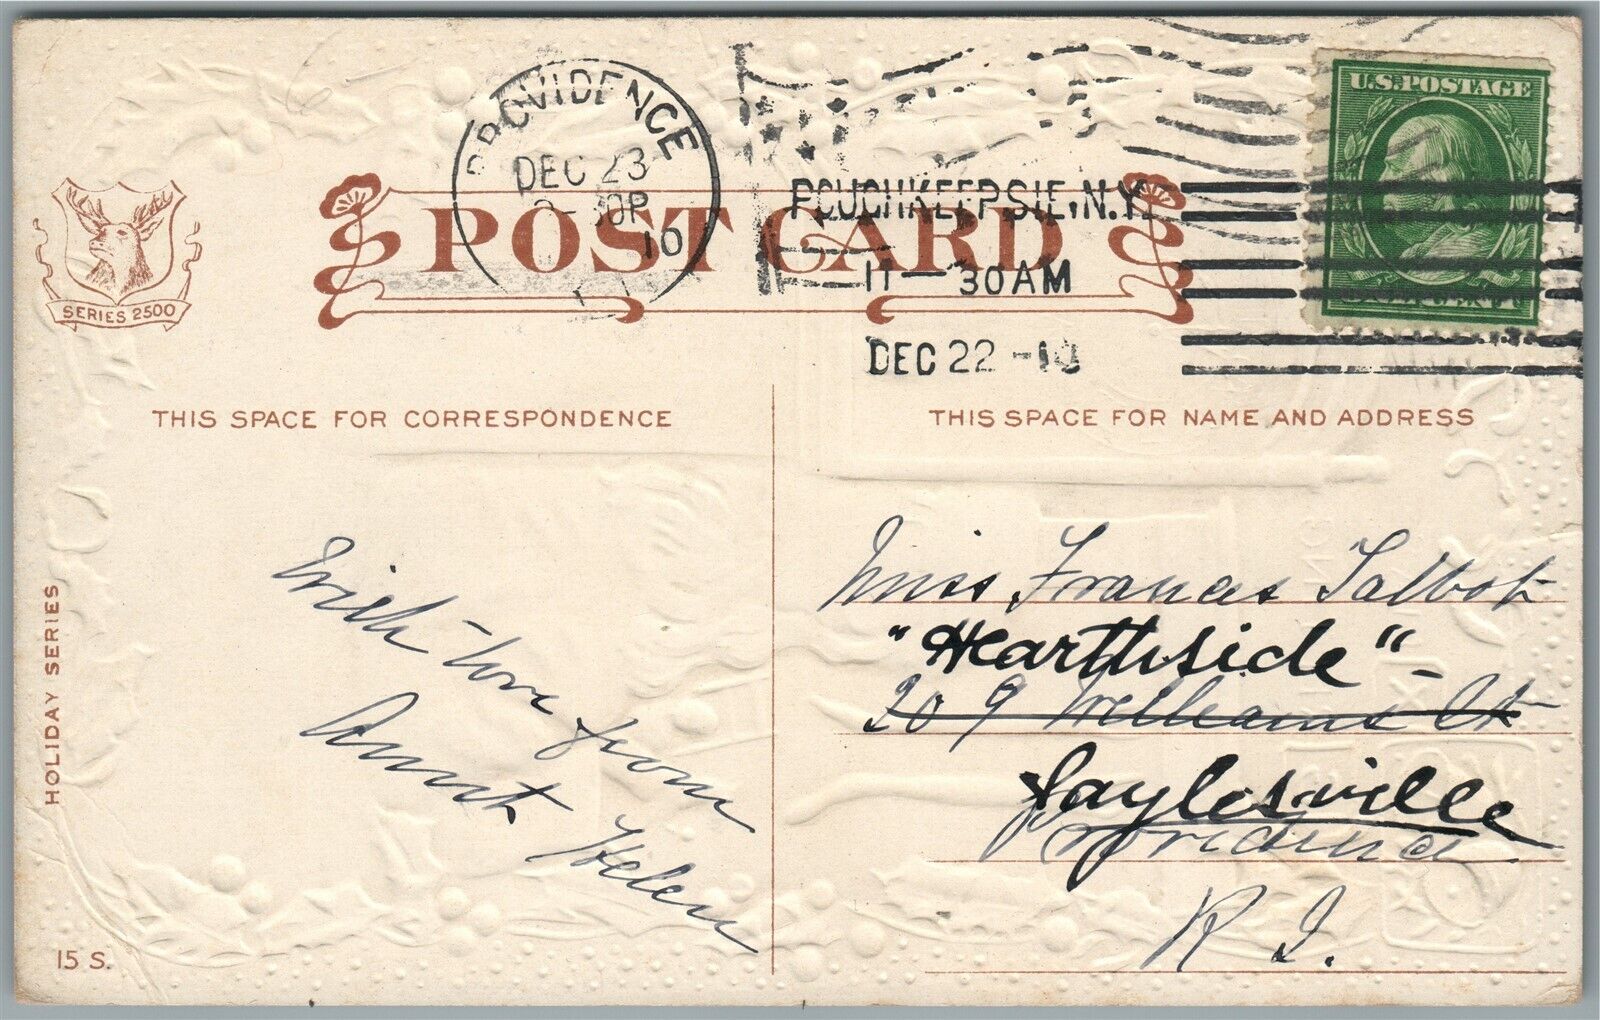 PROVIDENCE
DEC 23
30P
10
POUGHKEEPSIE, N.Y.
11-30 AM
DEC 22 -10
U.S. POSTAGE
POST CARD
SERIES 2500
THIS SPACE FOR CORRESPONDENCE
THIS SPACE FOR NAME AND ADDRESS
With love from
Aunt Helen
Miss Frances Talbot
"Hearthside" -
209 Williams St
Saylesville
Providence
R I.
HOLIDAY SERIES
15 S.